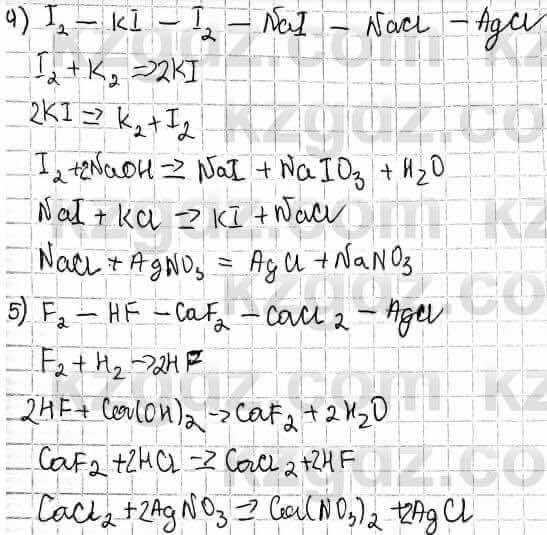 4) I₂ – KI – I₂ – NaI – NaCl – AgCl
I₂ + K₂ ⇒ 2KI
2KI ⇒ K₂ + I₂
I₂ + 2NaOH ⇒ NaI + NaIO₃ + H₂O
NaI + KCl ⇒ KI + NaCl
NaCl + AgNO₃ = AgCl + NaNO₃
5) F₂ – HF – CaF₂ – CaCl₂ – AgCl
F₂ + H₂ → 2HF
2HF + Ca(OH)₂ → CaF₂ + 2H₂O
CaF₂ + 2HCl → CaCl₂ + 2HF
CaCl₂ + 2AgNO₃ ⇒ Ca(NO₃)₂ + 2AgCl
kzgdz.com